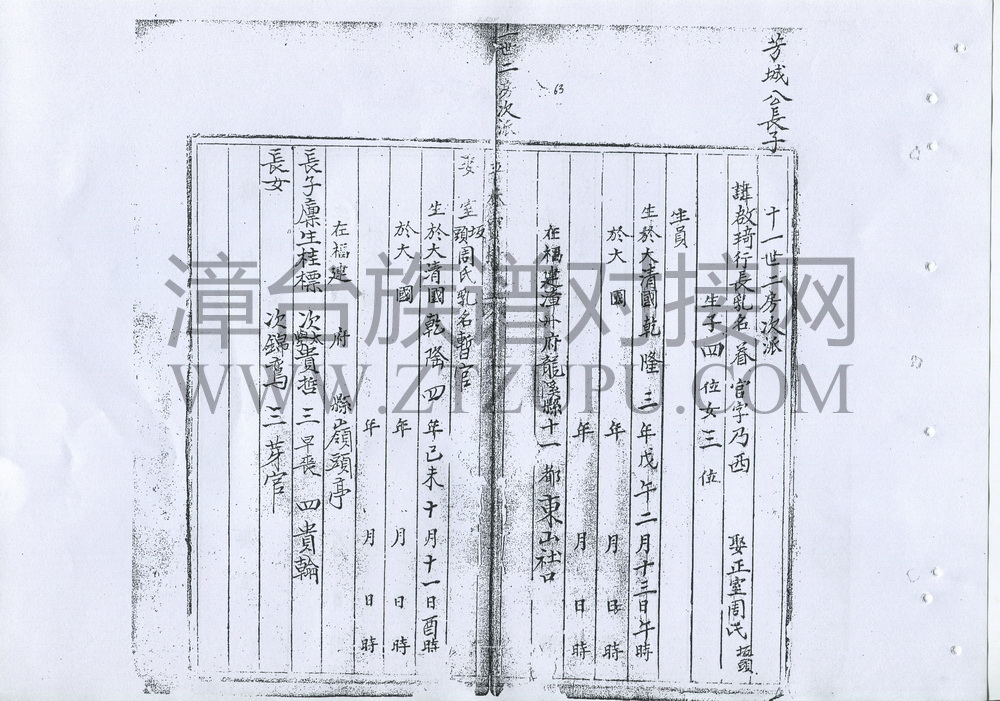 芳城公長子
十一世二房次派
諱啟琦行長乳名養官字乃西 娶正室周氏坂頭
生子四位女三位
生員
生於大清國乾隆三年戊午二月十三日午時
於大 國 年 月 日 時
年 月 日 時
在福建漳州府龍溪縣十一都東山社口
63
十一世二房次派
娶室坂頭周氏乳名暫官
生於大清國乾隆四年己未十月十一日酉時
於大 國 年 月 日 時
年 月 日 時
在福建 府 縣嶺頭亭
長子廩生桂標 次貴哲 三早喪 四貴翰
長女 次錦鸞 三芽官
漳台族谱对接网
WWW.ZTZUPU.COM